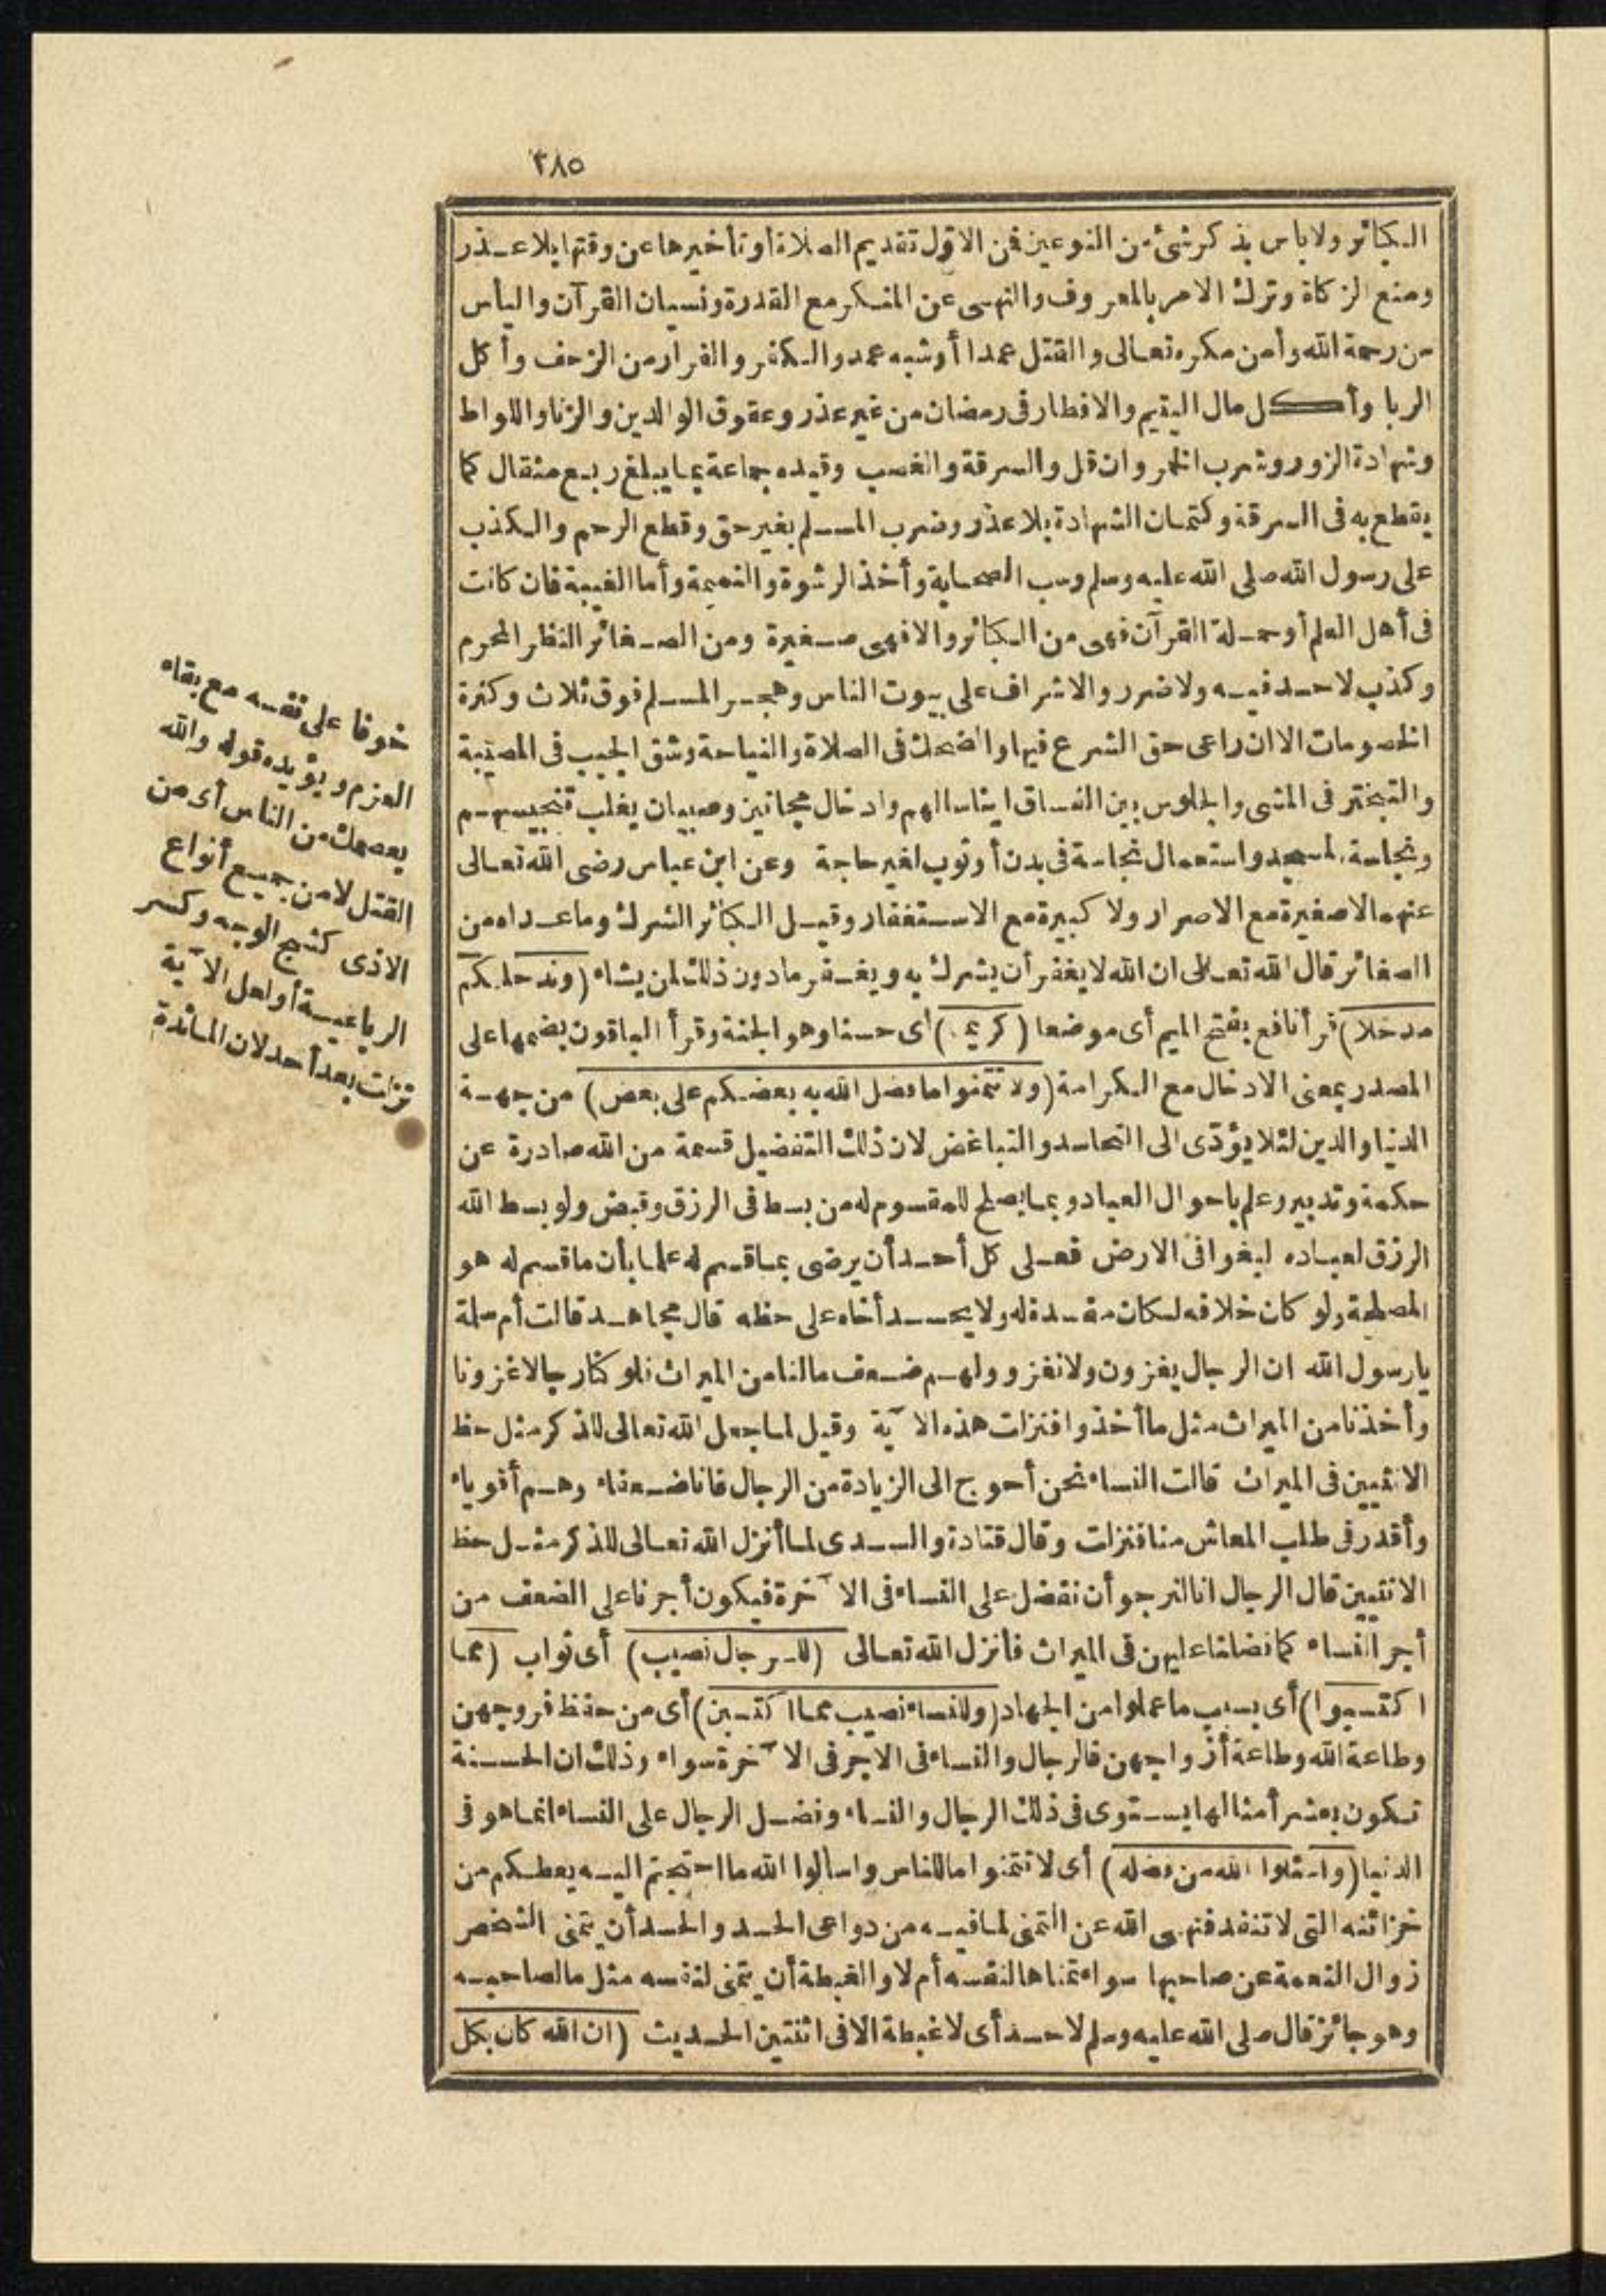 ٢٨٥
الكبائر ولا بأس بذكر شئ من النوعين فمن الاوّل تقديم الصلاة أو تأخيرها عن وقتها بلا عذر
ومنع الزكاة وترك الامر بالمعروف والنهى عن المنكر مع القدرة ونسيان القرآن واليأس
من رحمة الله وأمن مكره تعالى والقتل عمدا أو شبه عمد والكفر والفرار من الزحف وأكل
الربا وأكل مال اليتيم والافطار فى رمضان من غير عذر وعقوق الوالدين والزنا واللواط
وشهادة الزور وشرب الخمر وان قل والسرقة والغصب وقيده جماعة بما يبلغ ربع مثقال كما
يقطع به فى السرقة وكتمان الشهادة بلا عذر وضرب المسلم بغير حق وقطع الرحم والكذب
على رسول الله صلى الله عليه وسلم وسب الصحابة وأخذ الرشوة والنميمة وأما الغيبة فان كانت
فى أهل العلم أو حملة القرآن فهى من الكبائر والا فهى صغيرة ومن الصغائر النظر المحرم
وكذب لا حد فيه ولا ضرر والاشراف على بيوت الناس وهجر المسلم فوق ثلاث وكثرة
الخصومات الا ان راعى حق الشرع فيها والضحك فى الصلاة والنياحة وشق الجيب فى المصيبة
والتبختر فى المشى والجلوس بين الفساق ايناسا لهم وادخال مجانين وصبيان يغلب تنجيسهم
ونجاسة المسجد واستعمال نجاسة فى بدن أو ثوب لغير حاجة وعن ابن عباس رضى الله تعالى
عنهما لا صغيرة مع الاصرار ولا كبيرة مع الاستغفار وقيل الكبائر الشرك وما عداه من
الصغائر قال الله تعالى ان الله لا يغفر أن يشرك به ويغفر ما دون ذلك لمن يشاء (وندخلكم
مدخلا) قرأ نافع بفتح الميم أى موضعا (كريما) أى حسنا وهو الجنة وقرأ الباقون بضمها على
المصدر بمعنى الادخال مع الكرامة (ولا تتمنوا ما فضل الله به بعضكم على بعض) من جهة
الدنيا والدين لئلا يؤدّى الى التحاسد والتباغض لان ذلك التفضيل قسمة من الله صادرة عن
حكمة وتدبير وعلم باحوال العباد وبما يصلح للمقسوم له من بسط فى الرزق وقبض ولو بسط الله
الرزق لعباده لبغوا فى الارض فعلى كل أحد أن يرضى بما قسم له علما بأن ما قسم له هو
المصلحة ولو كان خلافه لكان مفسدة له ولا يحسد أخاه على حظه قال مجاهد قالت أم سلمة
يا رسول الله ان الرجال يغزون ولا نغزو ولهم ضعف ما لنا من الميراث فلو كنا رجالا غزونا
وأخذنا من الميراث مثل ما أخذوا فنزلت هذه الآية وقيل لما جعل الله تعالى للذكر مثل حظ
الانثيين فى الميراث قالت النساء نحن أحوج الى الزيادة من الرجال فانا ضعفاء وهم أقوياء
وأقدر فى طلب المعاش منا فنزلت وقال قتادة والسدى لما أنزل الله تعالى للذكر مثل حظ
الانثيين قال الرجال انا لنرجو أن نفضل على النساء فى الآخرة فيكون أجرنا على الضعف من
أجر النساء كما فضلنا عليهن فى الميراث فأنزل الله تعالى (للرجال نصيب) أى ثواب (مما
اكتسبوا) أى بسبب ما عملوا من الجهاد (وللنساء نصيب مما اكتسبن) أى من حفظ فروجهن
وطاعة الله وطاعة أزواجهن فالرجال والنساء فى الاجر فى الآخرة سواء وذلك ان الحسنة
تكون بعشر أمثالها يستوى فى ذلك الرجال والنساء وفضل الرجال على النساء انما هو فى
الدنيا (واسئلوا الله من فضله) أى لا تتمنوا ما للناس واسألوا الله ما احتجتم اليه يعطكم من
خزائنه التى لا تنفد فنهى الله عن التمنى لما فيه من دواعى الحسد والحسد أن يتمنى الشخص
زوال النعمة عن صاحبها سواء تمناها لنفسه أم لا والغبطة أن يتمنى لنفسه مثل ما لصاحبه
وهو جائز قال صلى الله عليه وسلم لا حسد أى لا غبطة الا فى اثنتين الحديث (ان الله كان بكل
خوفا على نفسه مع بقاء
العزم ويؤيده قوله والله
يعصمك من الناس أى من
القتل لا من جميع أنواع
الاذى كشج الوجه وكسر
الرباعية أو لعل الآية
نزلت بعد أحد لان المائدة